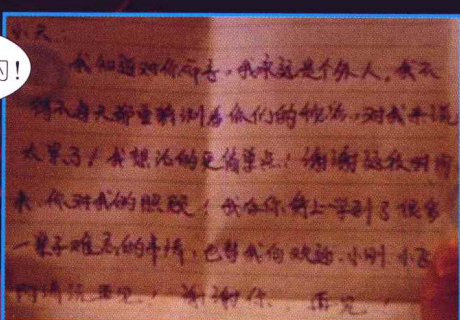 小天:
我知道对你而言,我永远是个外人,我不
得不每天都重新 你们的 ,对我来说
太累了!我想活的更简单点!谢谢这段时间
来,你对我的照顾!我在你身上学到了很多
一辈子难忘的事情,也替我向 、小刚 小飞
说再见! 谢谢你, 再见!
!